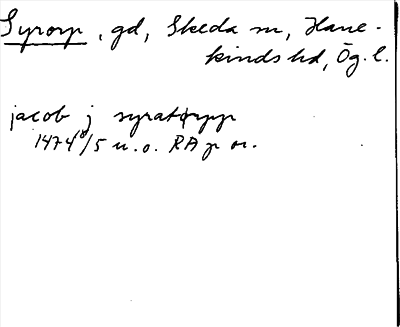 Syrorp, gd, Skeda sn, Hane-
kinds hd, Ög. l.
jacob j syratorpp
1474 8/5 u. o. RA p or.